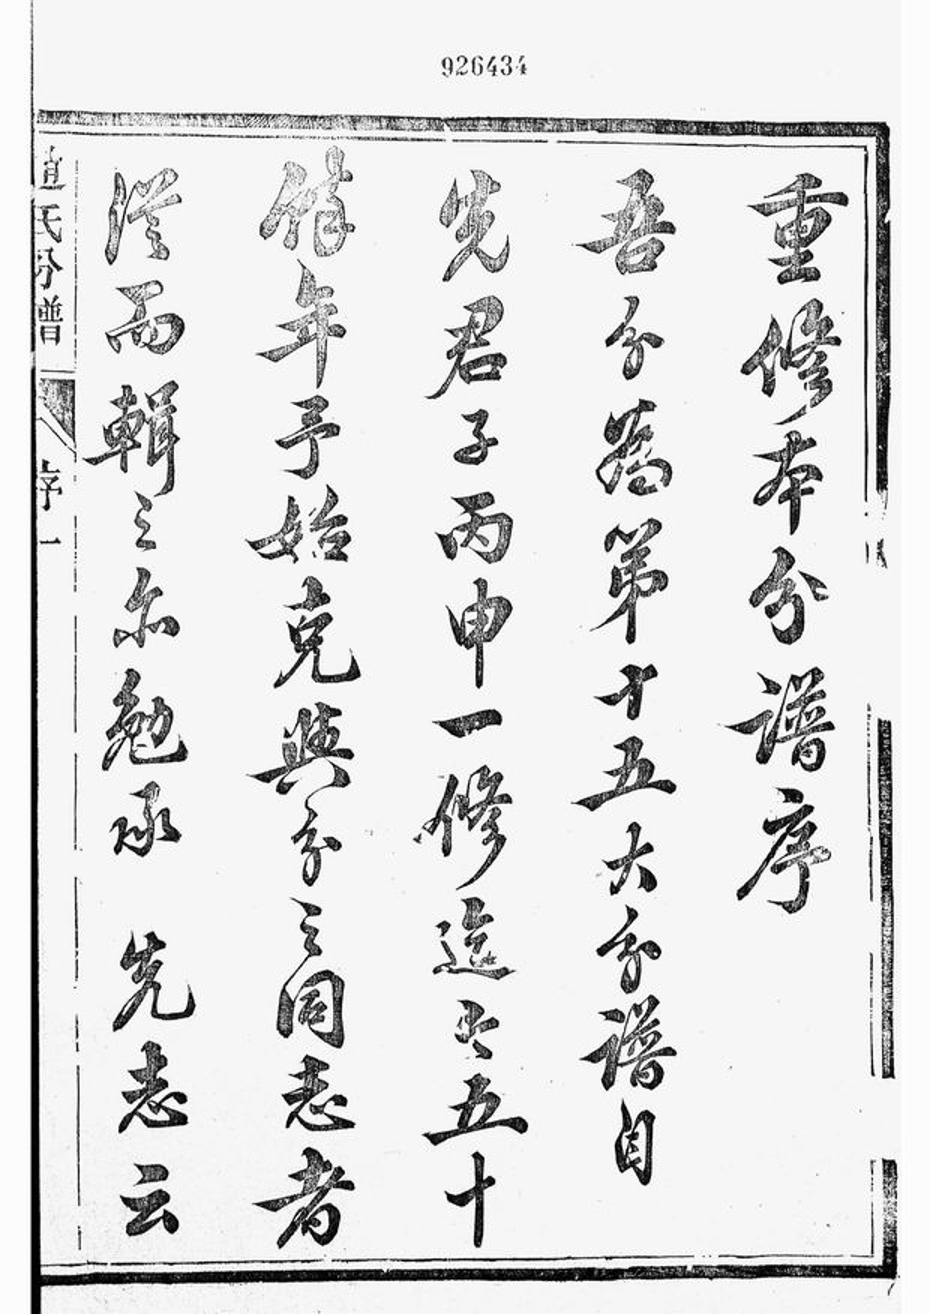 926434
重修本分譜序
吾分為第十五大分譜自
先君子丙申一修迄今五十
餘年予始克與分之同志者
從而輯之亦勉承 先志云
趙氏分譜 序 一